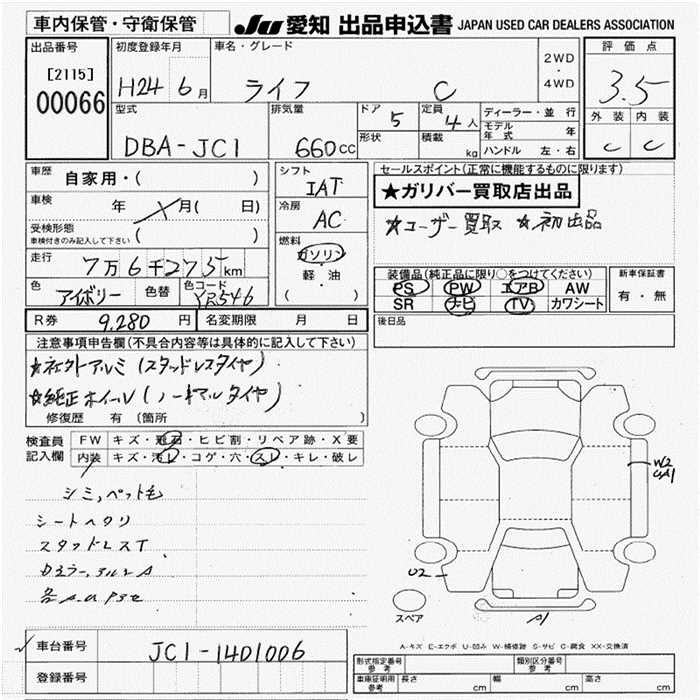 車内保管・守衛保管
JU 愛知 出品申込書 JAPAN USED CAR DEALERS ASSOCIATION
出品番号 初度登録年月 車名・グレード 評価点
[2115] 2WD
00066 H24 6月 ライフ C ・ 3.5
4WD
型式 排気量 ドア 5 定員 4人 ディーラー・並 行 外装 内装
DBA-JC1 660cc 形状 積載 kg モデル年式 年 C C
ハンドル 左・右
車歴 自家用・( ) シフト セールスポイント(正常に機能するものに限ります)
IAT ★ガリバー買取店出品
車検 年 月( 日) 冷房 ★ユーザー買取 ★初出品
受検形態 AC
車検付きのみ記入して下さい ( )
走行 燃料
7万6千275km ガソリン 装備品(純正品に限り○をつけてください) 新車保証書
色 アイボリー 色替 色コード YR546 軽・油 PS PW エアB AW 有・無
( ) SR ナビ TV カワシート
R券 9,280円 名変期限 月 日 後日品
注意事項申告欄(不具合内容等は具体的に記入して下さい)
★社外アルミ(スタッドレスタイヤ)
★純正ホイール(ノーマルタイヤ)
修復歴 有 (箇所 )
検査員 FW キズ・飛石・ヒビ割・リペア跡・X要
記入欄 内装 キズ・汚レ・コゲ・穴・スレ・キレ・破レ
W2
シミ,ペット毛
シートヘタリ
スタッドレスT
U2
A1
スペア
A-キズ E-エクボ U-凹み W-補修跡 S-サビ C-腐食 XX-交換済
車台番号 JC1-1401006
登録番号
形式指定番号 参考 類別区分番号 参考
車庫証明用 参考 長さ cm 幅 cm 高さ cm